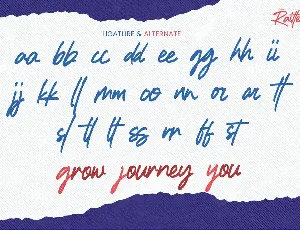 LIGATURE & ALTERNATE
aa bb cc dd ee gg hh ii
jj kk ll mm oo nn or ar tt
sl tl lt ss rn ff st
grow journey you